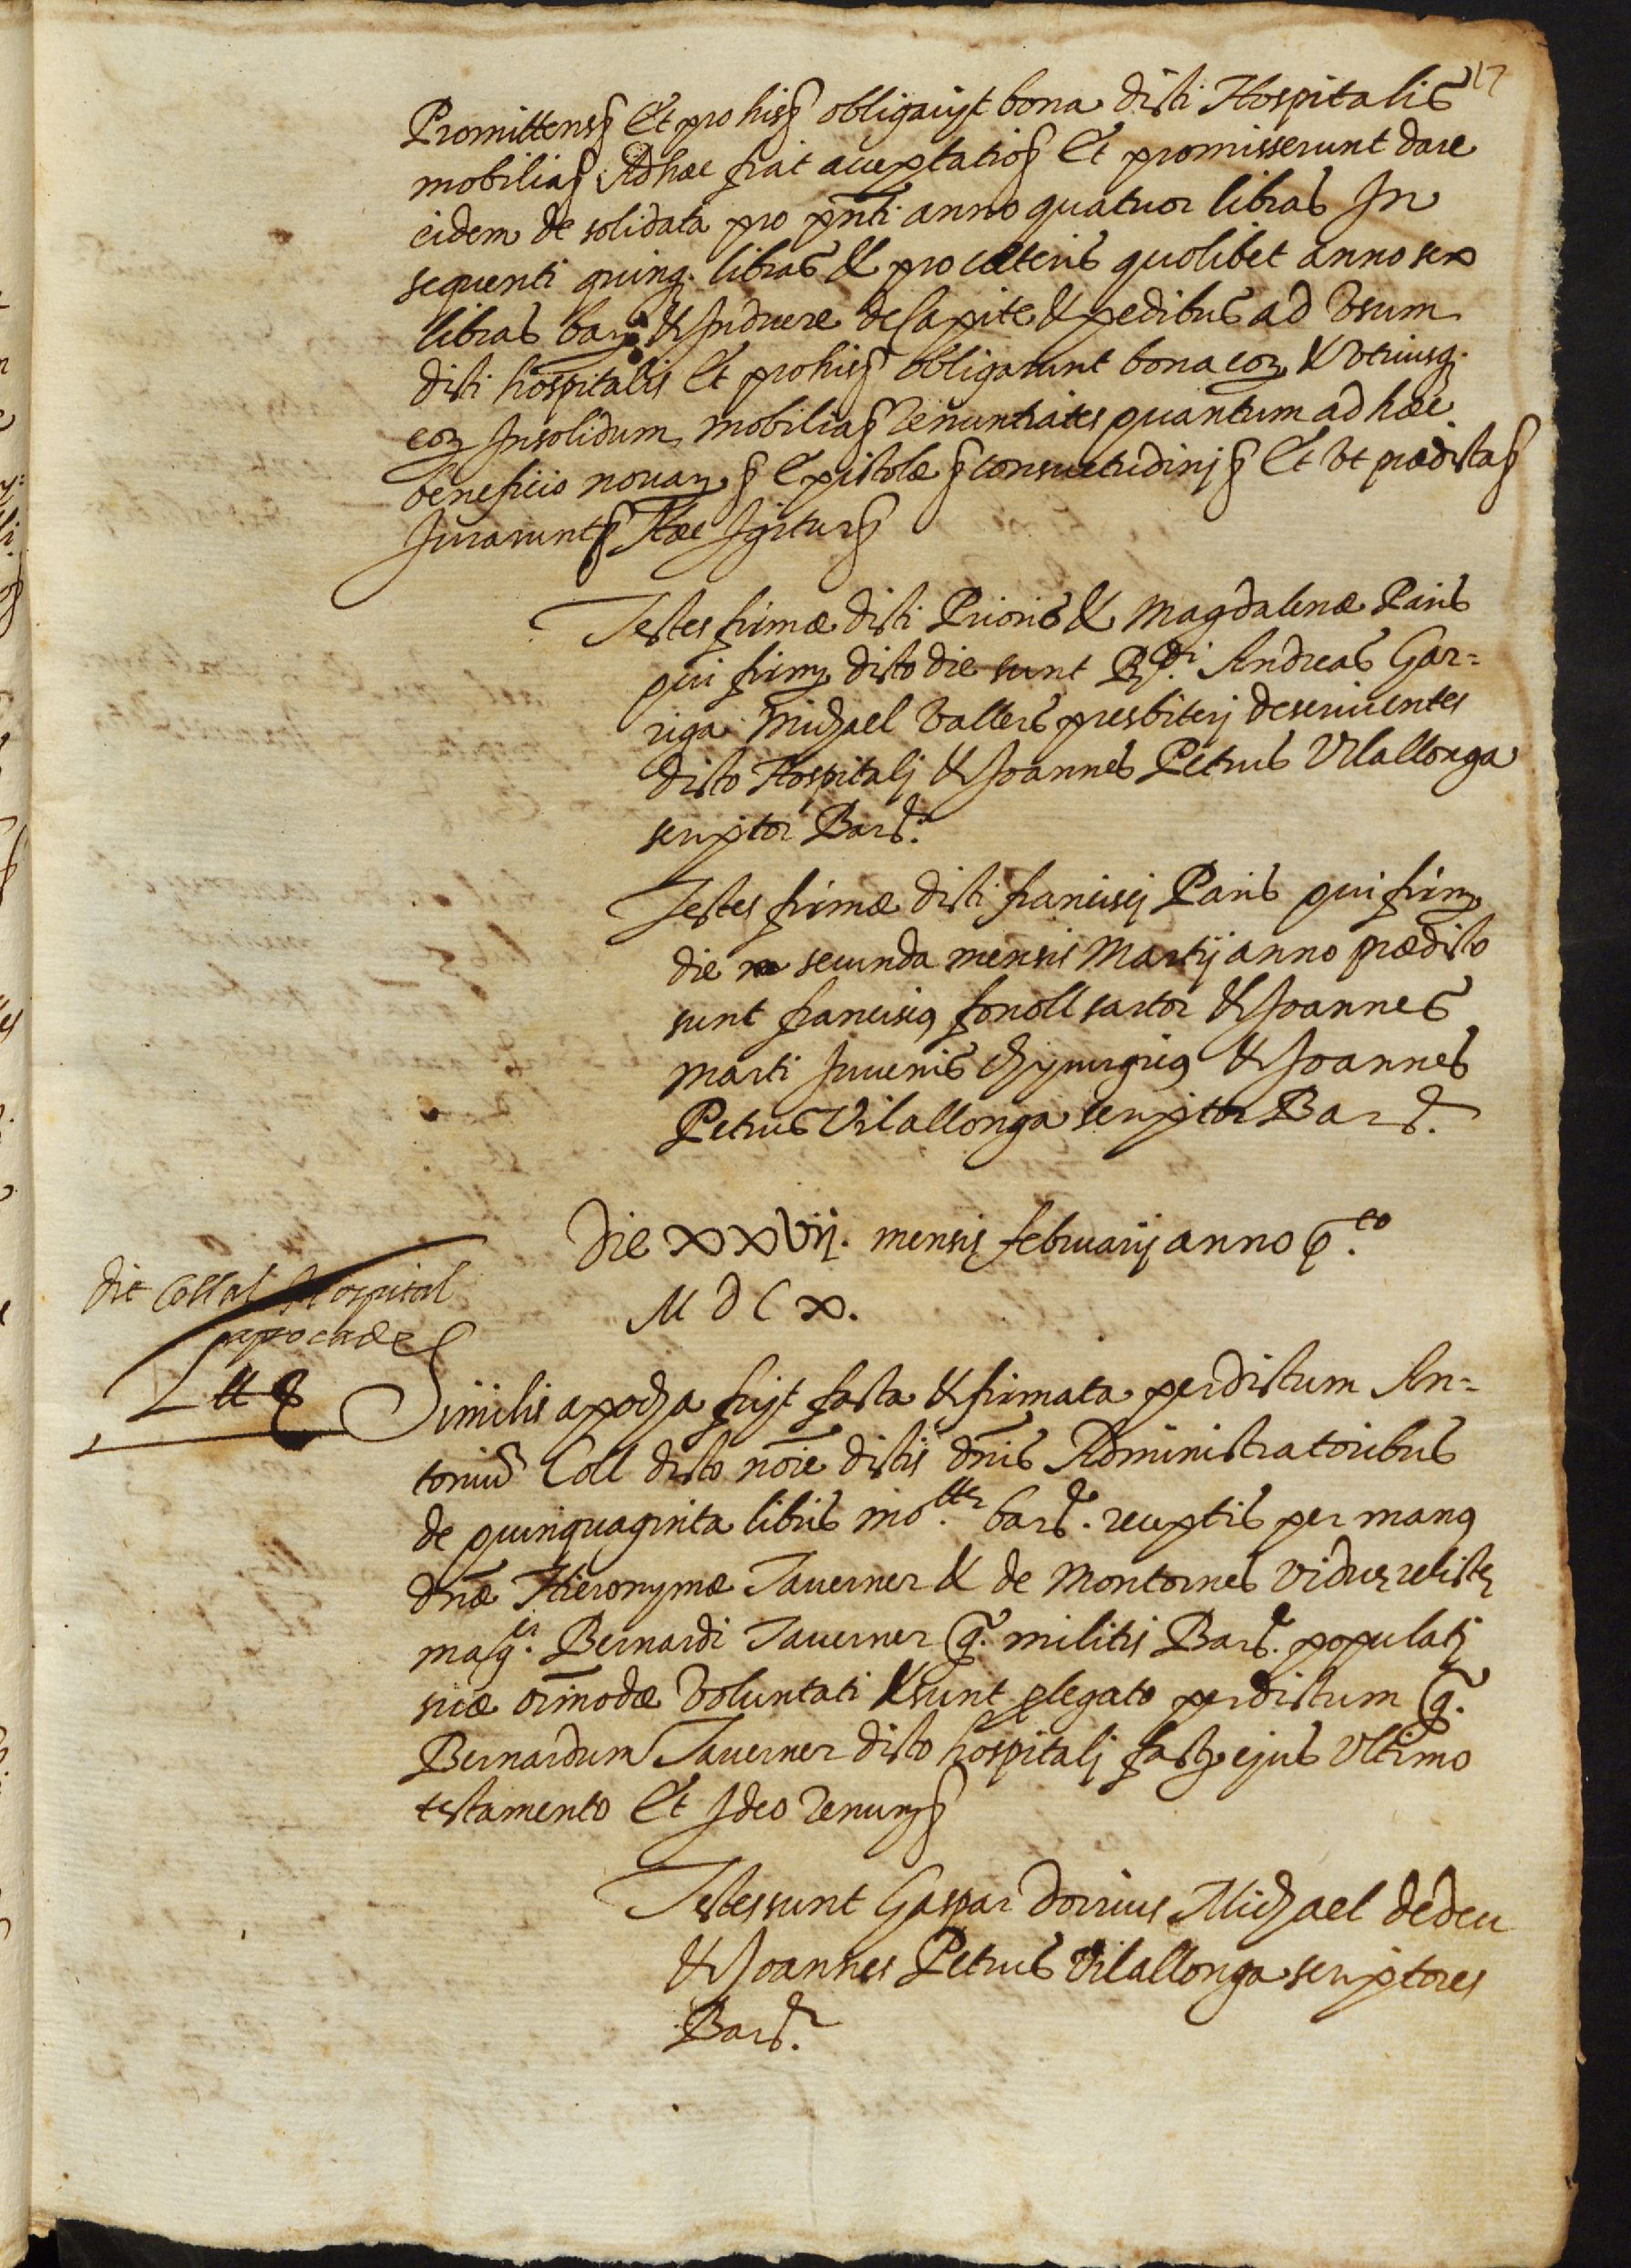 17
Promittens§ Et pro his§ obligavit bona dicti Hospitalis
mobilia§ Ad hæc fiat acceptatio§ Et promisserunt dare
eidem de solidata pro pnti anno quatuor libras In
sequenti quinq. libras & pro cæteris quolibet anno sex
libras bar. & Induere de capite & pedibus ad Vsum
dicti hospitalis Et pro his§ obligarunt bona eoꝝ & Vtriusq.
eoꝝ Insolidum mobilia§ Renuntiates quantum ad hæc
beneficio novaꝝ § Epistolæ § consuetudinj § Et Vt prædicta§
Jurarunt§ Hæc Igitur§
Testes firmæ dicti Prioris & Magdalenæ Paris
qui firmꝫ dicto die sunt Rdi. Andreas Gar=
riga Michael Vallers presbiterj deservientes
dicto Hospitalj & Joannes Petrus Vilallonga
scriptor Barñ.
Testes firmæ dicti franciscj Paris qui firmꝫ
die secunda mensis Martij anno prædicto
sunt francisꝰ fonoll sartor & Joannes
Marti Juvenis chyrurgiꝰ & Joannes
Petrus Vilallonga scriptor Barñ.
Die xxvij. mensis februarij anno p.to
M D C x.
Dit Coll al Hospital
apoca de
L tt §
Similis apocha fuit facta & firmata per dictum An=
toniũ Coll dicto noĩe dictis dñis Administratoribus
de quinquaginta libris mo.ttr barñ. receptis per manꝰ
dñæ Hieronymæ Taverner & de Montornes viduę relictę
magci. Bernardi Taverner q̃. militis Barñ. populatj
suæ oĩmodæ Voluntati & sunt ꝓ legato per dictum q̃.
Bernardum Taverner dicto hospitalj facto ejus Vltimo
testamento Et Ideo renunꝫ§
Testes sunt Gaspar Dorrius Michael dedeu
& Joannes Petrus Vilallonga scriptores
Barñ.